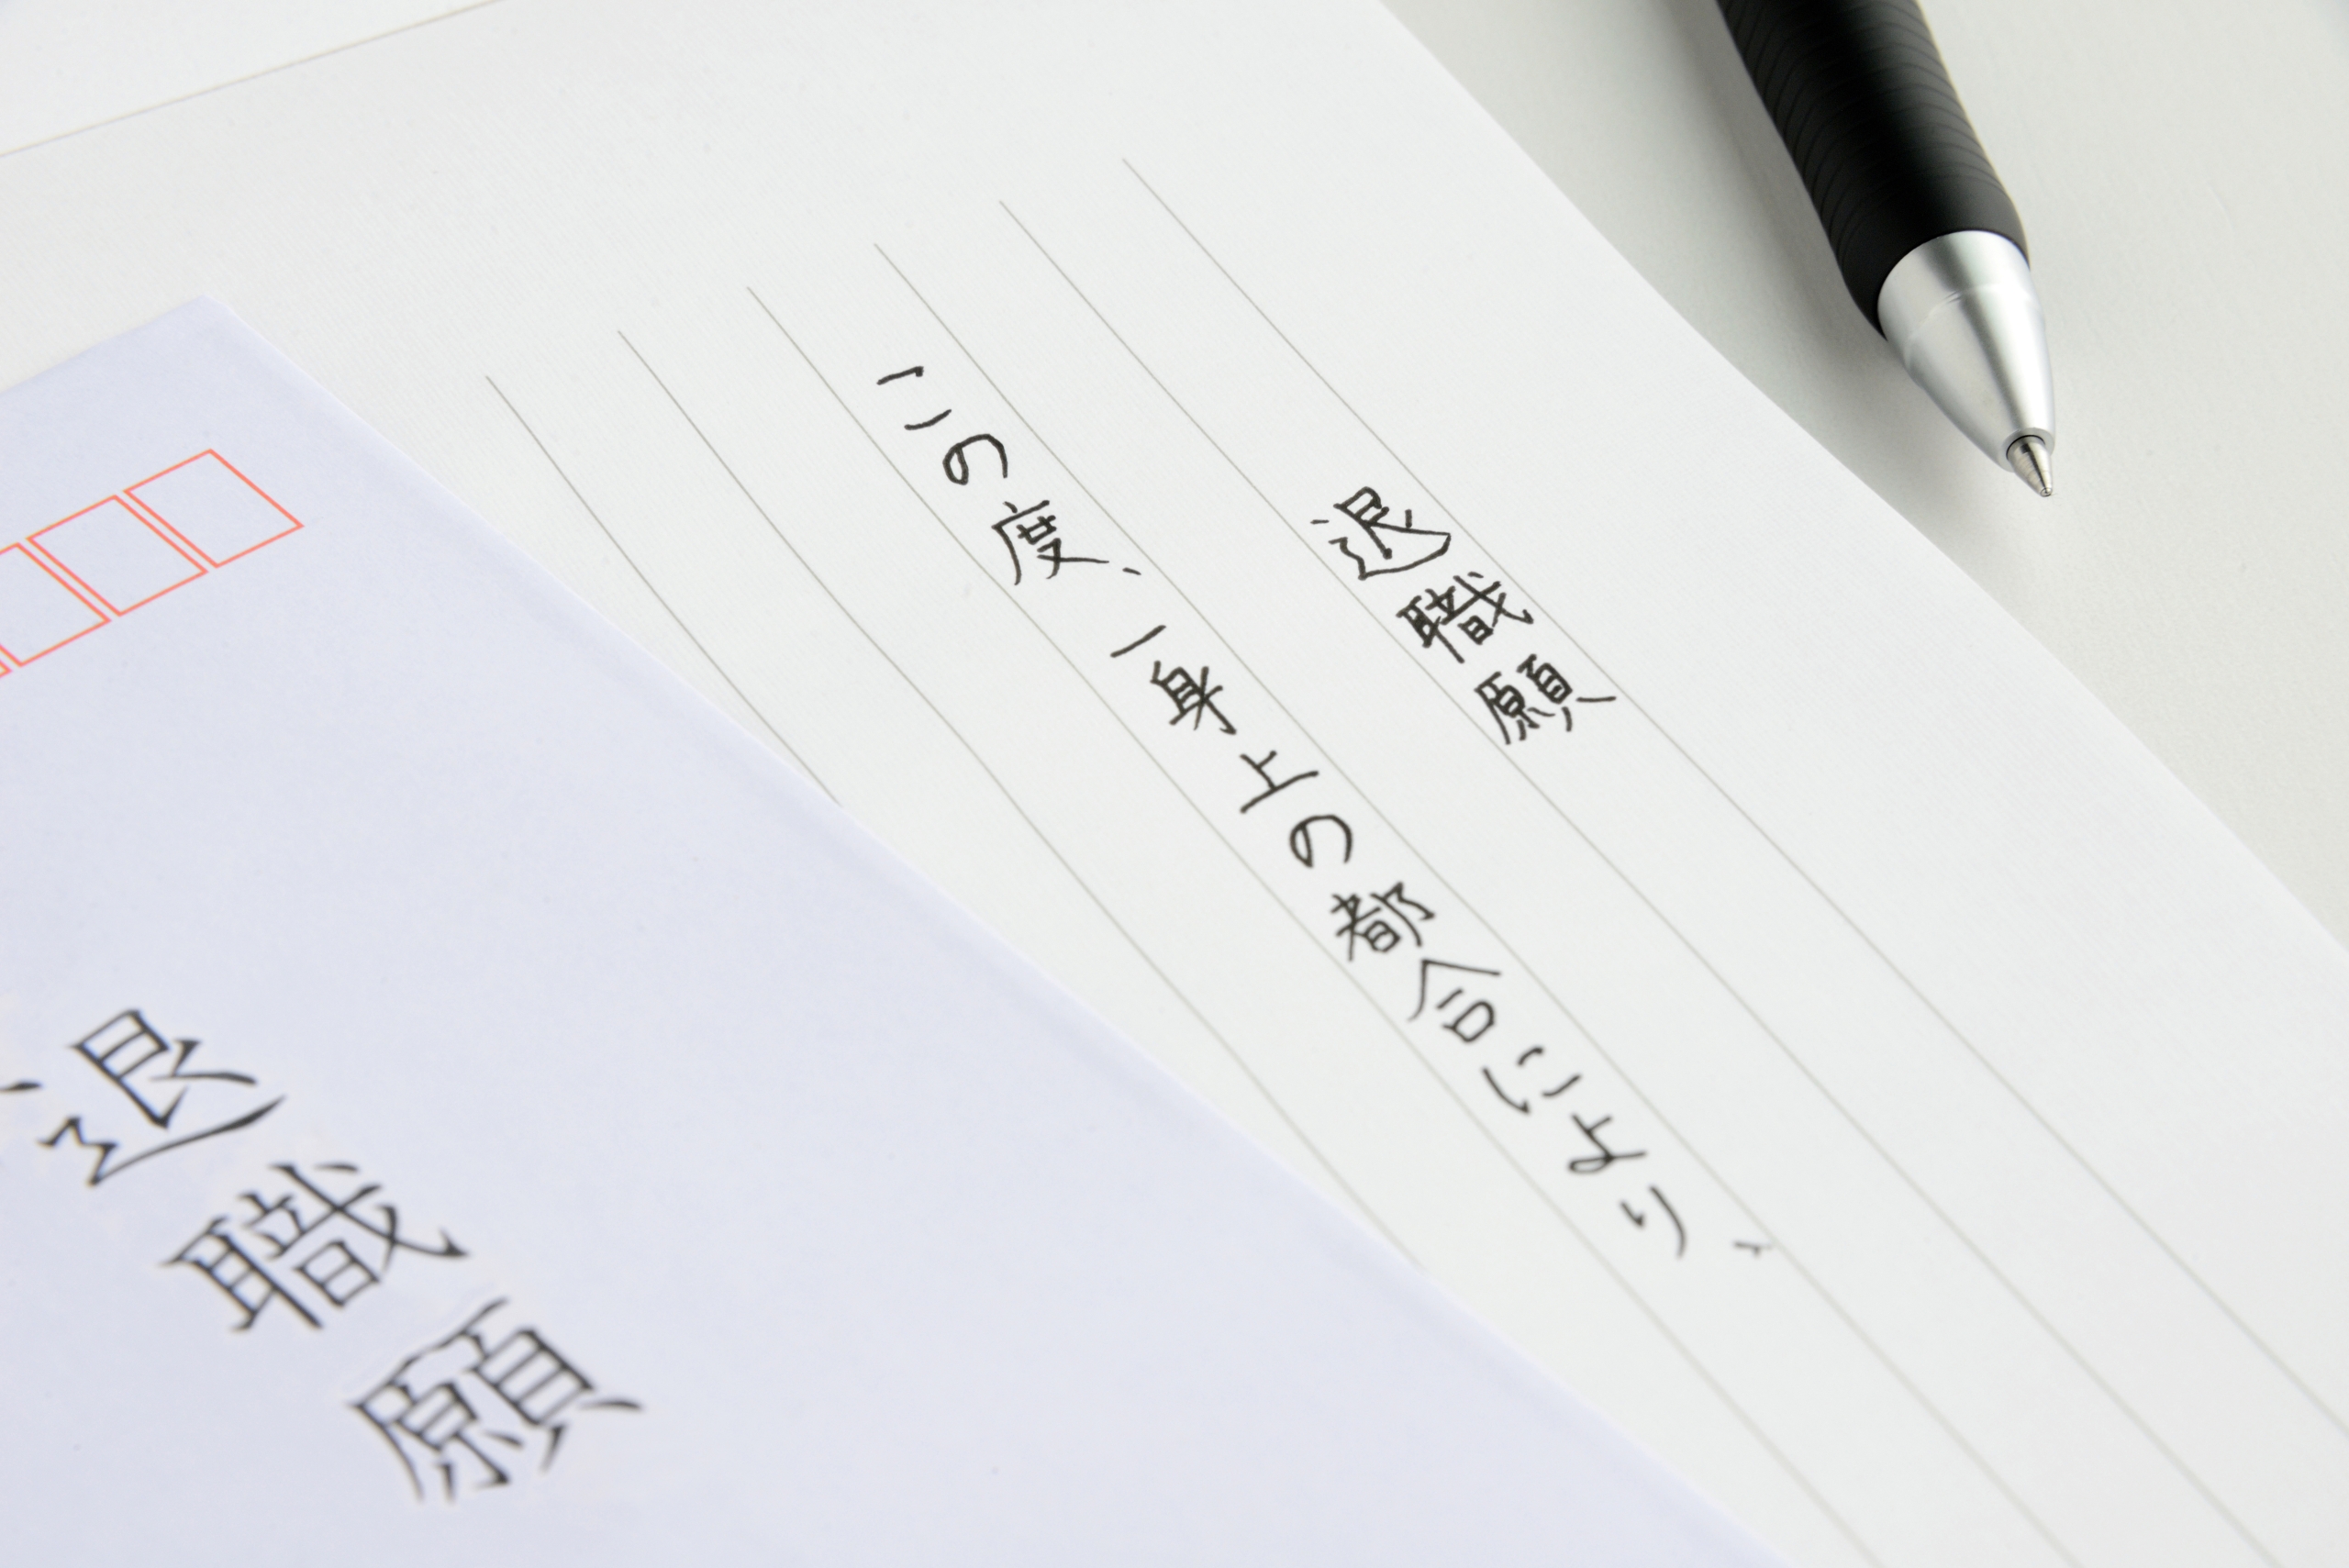 退職願
この度、一身上の都合により、
退職願